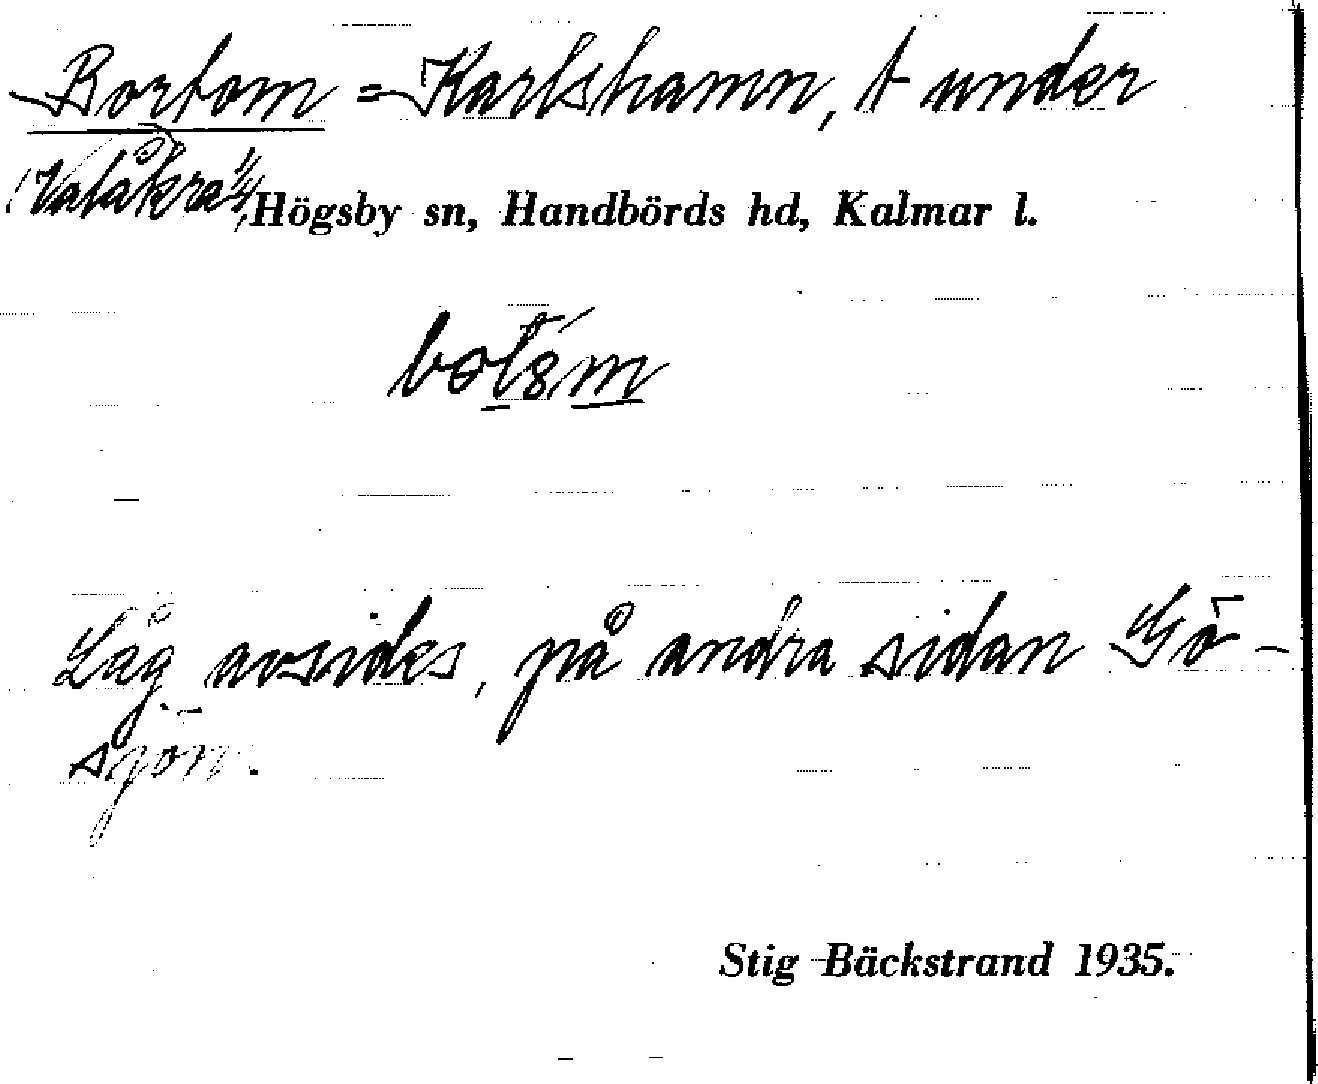 Bortom = Karlshamn, t under
Valåkra 1/4, Högsby sn, Handbörds hd, Kalmar l.
Låg avsides, på andra sidan Gö-
sjön.
Stig Bäckstrand 1935.